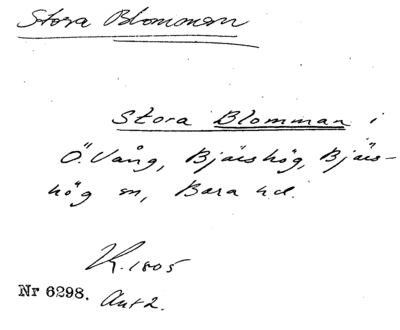 Stora Blomman
Stora Blomman i
Ö. Vång, Bjäishög, Bjäis-
hög sn, Bara hd.
K. 1805
Nr 6298. Ant 2.